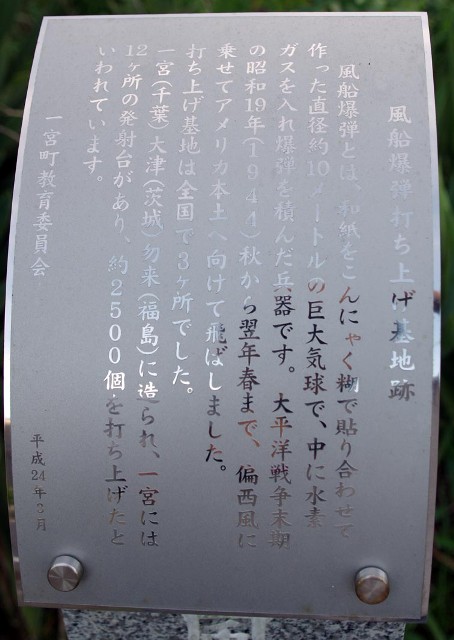 風船爆弾打ち上げ基地跡
風船爆弾とは、和紙をこんにゃく糊で貼り合わせて
作った直径約10メートルの巨大気球で、中に水素
ガスを入れ爆弾を積んだ兵器です。大平洋戦争末期
の昭和19年(1944)秋から翌年春まで、偏西風に
乗せてアメリカ本土へ向けて飛ばしました。
打ち上げ基地は全国で3ヶ所でした。
一宮(千葉)大津(茨城)勿来(福島)に造られ、一宮には
12ヶ所の発射台があり、約2500個を打ち上げたと
いわれています。
一宮町教育委員会
平成24年3月